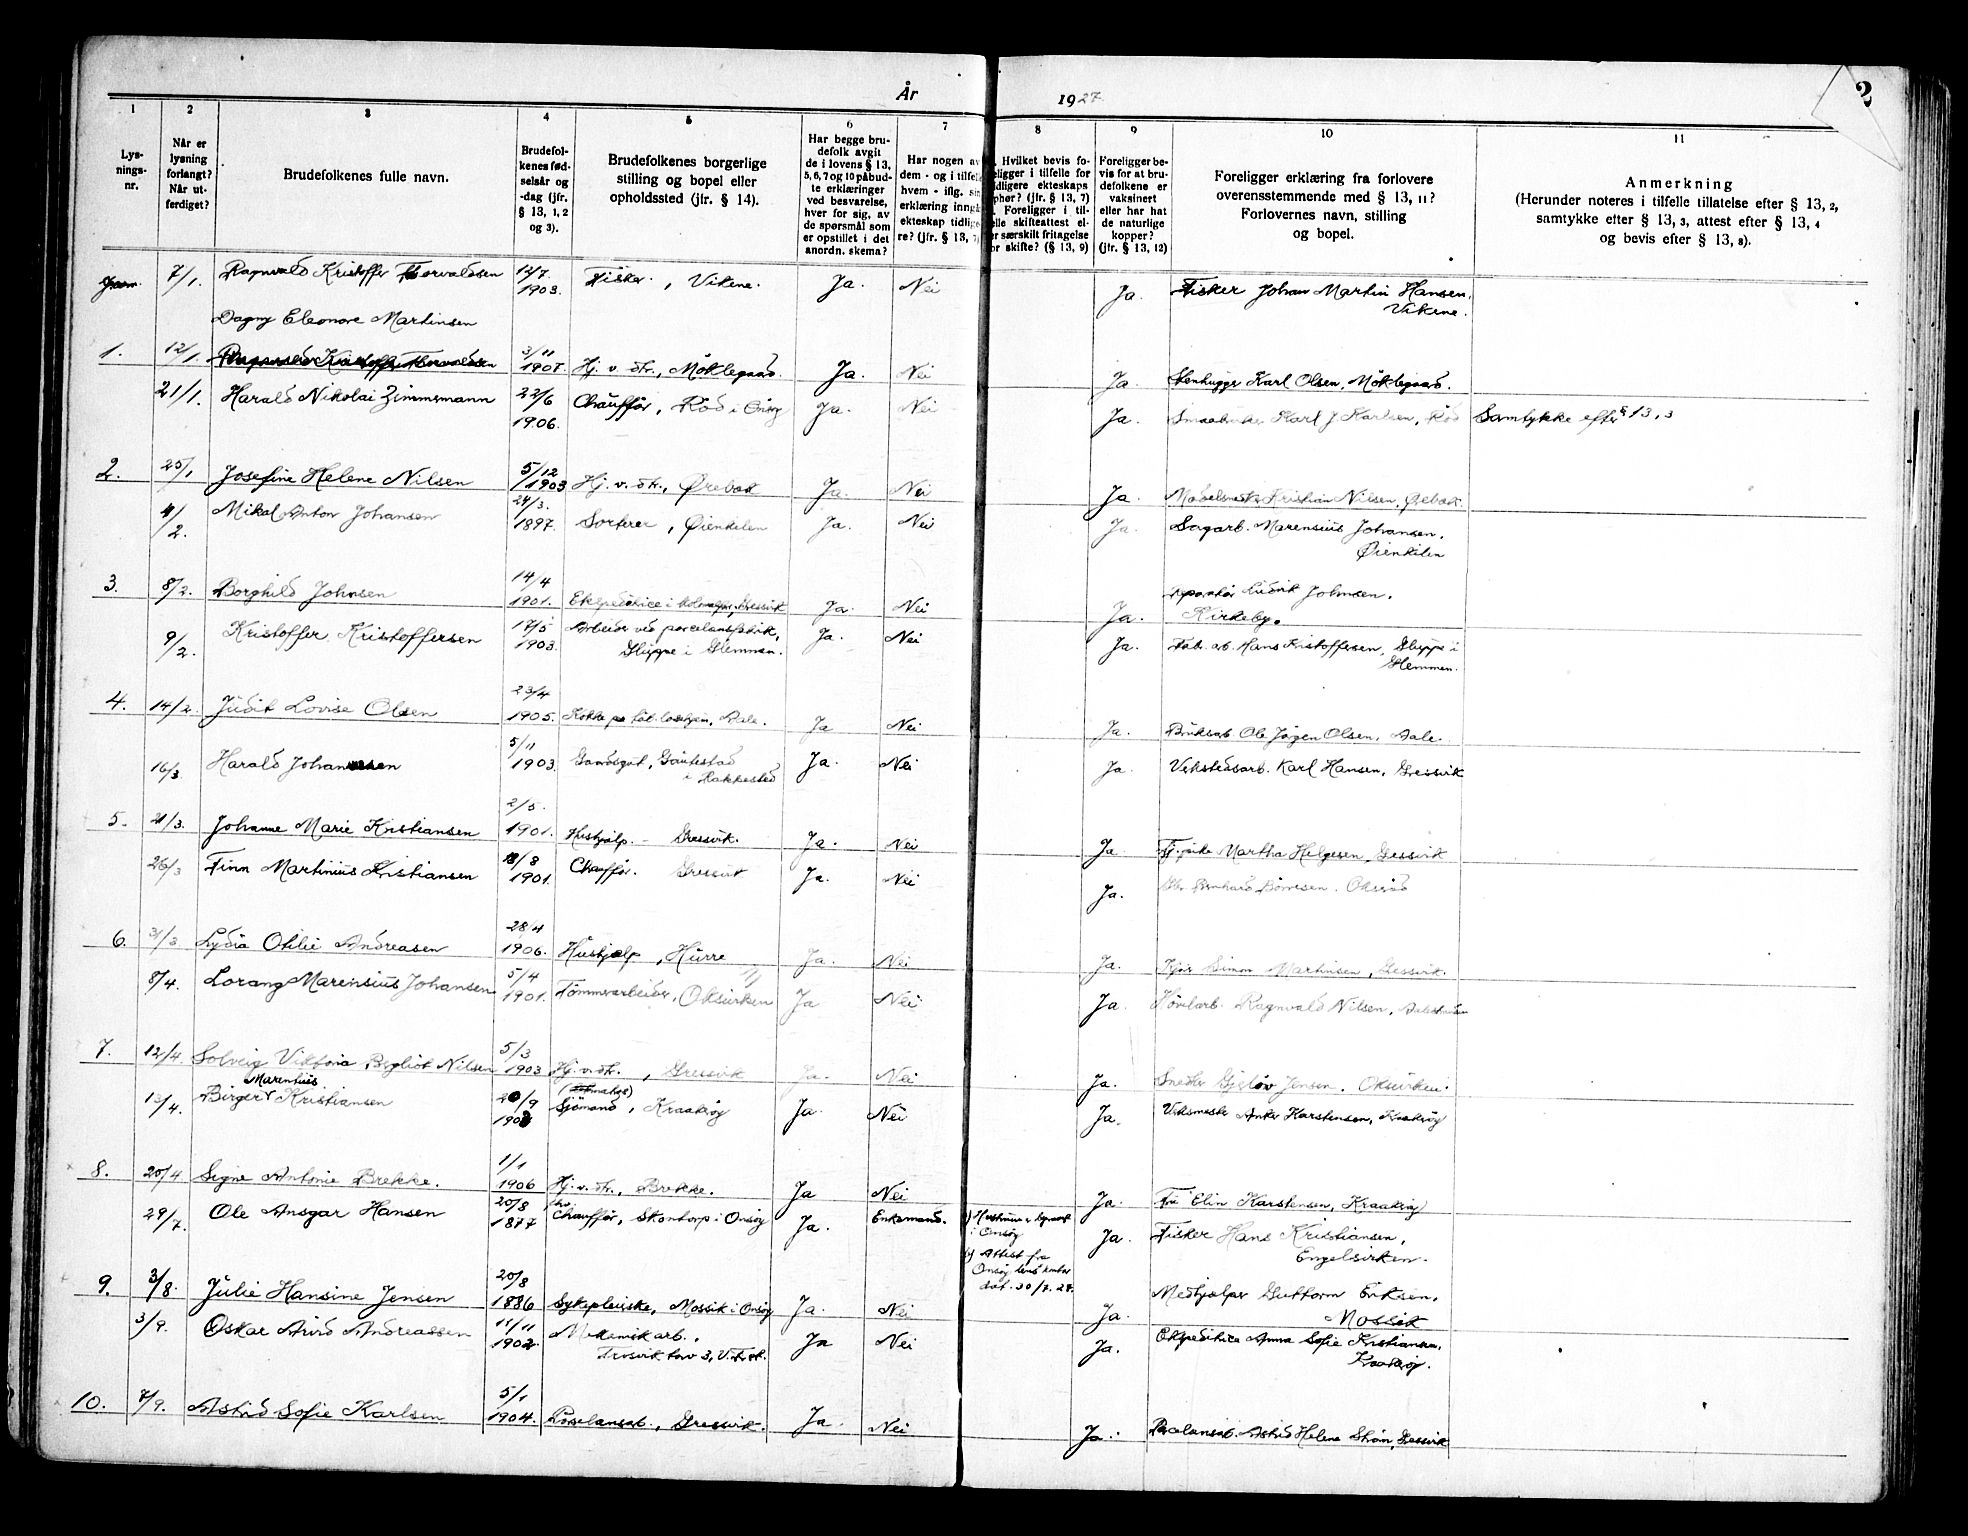 År
1927.
2
1
2
3
4
5
6
7
8
9
10
11
Lys-
nings-
nr.
Når er
lysning
forlangt?
Når ut-
ferdiget?
Brudefolkenes fulle navn.
Brudefol-
kenes fød-
selsår og
-dag (jfr.
§ 13, 1, 2
og 3).
Brudefolkenes borgerlige
stilling og bopel eller
opholdssted (jfr. § 14).
Har begge bru-
defolk avgit
de i lovens § 13,
5, 6, 7 og 10 påbud-
te erklæringer
ved besvarelse,
hver for sig, av
de spørsmål som
er opstillet i det
anordn. skema?
Har nogen av
dem - og i tilfelle
hvem - iflg. sin
erklæring inngå
ekteskap tidlige
re? (jfr. § 13, 7)
Hvilket bevis fo-
eligger i tilfelle for
idligere ekteskaps
phør? (jfr. § 13, 7)
Foreligger i til-
elle skifteattest el-
er særskilt fritagelse
or skifte? (§ 13, 9)
Foreligger be-
vis for at bru-
defolkene er
vaksinert
eller har hat
de naturlige
kopper?
(jfr. § 13, 12)
Foreligger erklæring fra forlovere
overensstemmende med § 13, 11?
Forlovernes navn, stilling
og bopel.
Anmerkning
(Herunder noteres i tilfelle tillatelse efter § 13, 2,
samtykke efter § 13, 3, attest efter § 13, 4
og bevis efter § 13, 8).
7/1. Ragnvald Kristoffer Thorvaldsen 12/7. 1903. Fisker, Vikene. Ja. Nei Ja. Fisker Johan Martin Hansen,
Vikene.
Dagny Eleonore Martinsen
1. 12/1. 3/11 1907. Hj. v. str., Möklegaard. Ja. Nei Ja. Stenhugger Karl Olsen, Möklegaard.
21/1. Harald Nikolai Zimmermann 22/6 1906. Chauffør, Röd i Onsøy Ja. Nei Ja. Smaabruker Karl J. Karlsen, Röd Samtykke efter § 13, 3
2. 25/1 Josefine Helene Nilsen 5/12 1903 Hj. v. str., Ørebæk Ja. Nei Ja. Kristian Nilsen, Ørebæk.
4/2. Mikal Anton Johansen 24/3. 1897. Sorterer, Øienkilen Ja. Nei Ja. Sagarb. Marensius Johansen,
Øienkilen
3. 8/2. Borghild Johnsen 14/4 1901. Ekspeditrice i Kolonialfor., Gressvik Ja. Nei Ja. Ludvik Johnsen,
Kirkeby.
9/2. Kristoffer Kristoffersen 17/5 1903. Arbeider ved porcelansfabrik, Ja. Nei Ja. Fabr. arb. Hans Kristoffersen, Gluppe i
Gluppe i Glemmen. Glemmen.
4. 14/2. Judit Lovise Olsen 23/4 1905. Kokke pa Aale. Ja Nei Ja. Bruksarb. Ole Jörgen Olsen, Aale.
16/3. Harald Johannessen 5/11 1903. Gaardsgut, Gautestad Ja. Nei Ja. Verkstedsarb. Karl Hansen, Gressvik
i Rakkestad
5. 21/3. Johanne Marie Kristiansen 2/5. 1901. Hushjælp. - Gressvik. Ja. Nei Ja. Tj.pike Martha Helgesen, Gressvik
26/3 Finn Martinius Kristiansen 18/8 1901. Chauffør. Gressvik Ja. Nei Ja. Bernhard Börresen. Oksviks
6. 31/3 Lydia Otilie Andreasen 28/4 1906. Hushjælp, Hurre Ja. Nei Ja. Simon Martinsen, Gressvik.
8/4. Lorang Marensius Johansen 5/4 1901. Tömmerarbeider, Oksvirken Ja Nei Ja. Hövlarb. Ragnvald Nilsen,
7. 12/4. Solveig Viktoria Bergliot Nilsen 5/3 1903 Hj. v. str., Gressvik Ja. Nei Ja. Snedker Gjerlöw Jensen. Oksvirken.
Marentius
13/4. Birger Kristiansen 20/9 1903 Sjömand, Kraakröy Ja. Nei Ja. Anker Karstensen, Kraakröy
8. 20/4 Signe Antonie Brekke. 1/1 1906 Hj. v. str., Brekke. Ja Nei Ja. Fru Elin Karstensen, Kraakröy
29/7. Ole Ansgar Hansen 20/8 1877 Chauffør, Skontorp i Onsøy Ja. Enkemand. i Onsøy Ja. Fisker Hans Kristiansen,
Engelsviken.
b) Attest fra
Onsøy lensmand
dat. 30/7. 27.
9. 3/8. Julie Hansine Jensen 20/8 1886 Sykepleierske, Mossik i Onsøy Ja. Nei Ja. Medhjælper Guttorm Eriksen,
Mossik
3/9. Oskar Arvid Andreassen 11/11 1902 Mekanisk arb., Ja Nei Ja. Ekspeditrice Anna Sofie Kristiansen,
Trosvik torv 3, V. Fr.st. Kraakröy.
10. 7/9. Astrid Sofie Karlsen 5/1 1904. Porselansarb., Gressvik. Ja. Nei Ja. Porcelansarb. Astrid Helene Ström, Gressvik